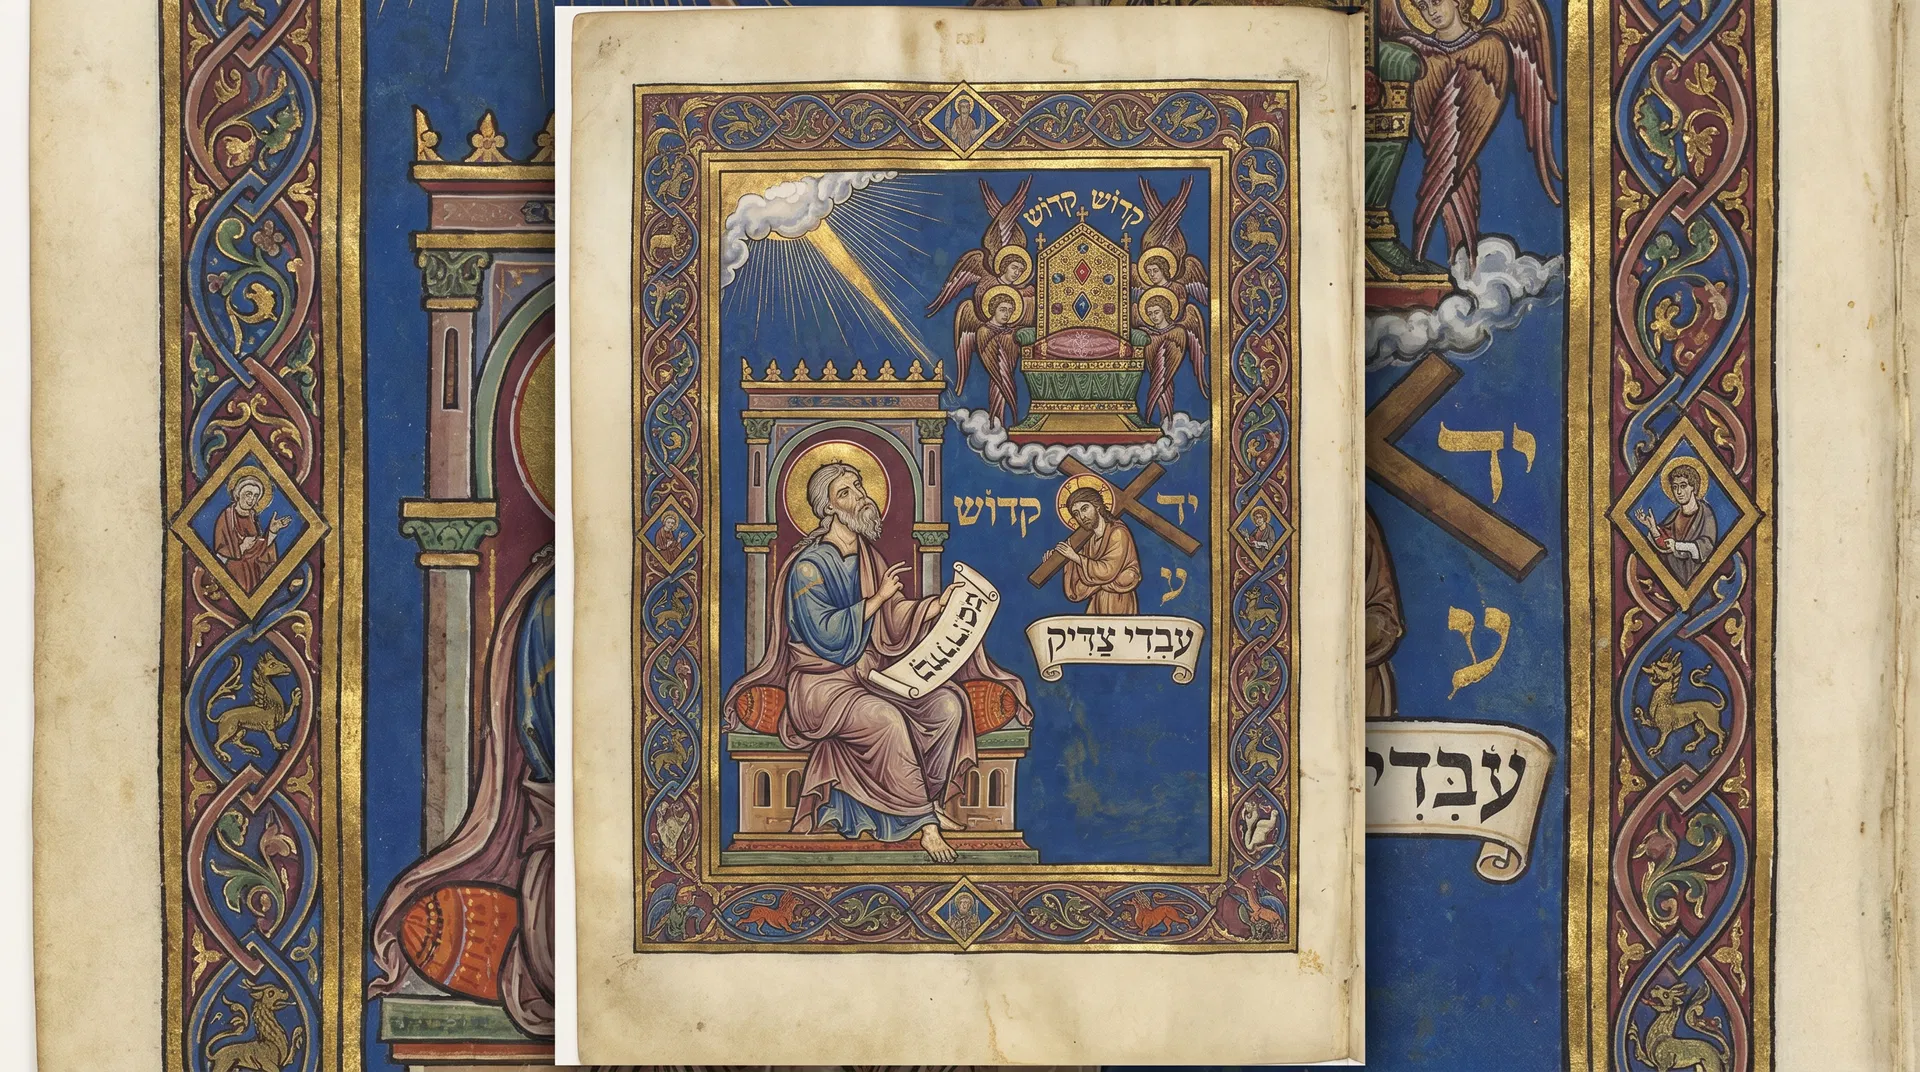 קדוֹש קדוֹש
קדוֹש
יד
ע
עבִדִי צַדִּיק
יד
ע